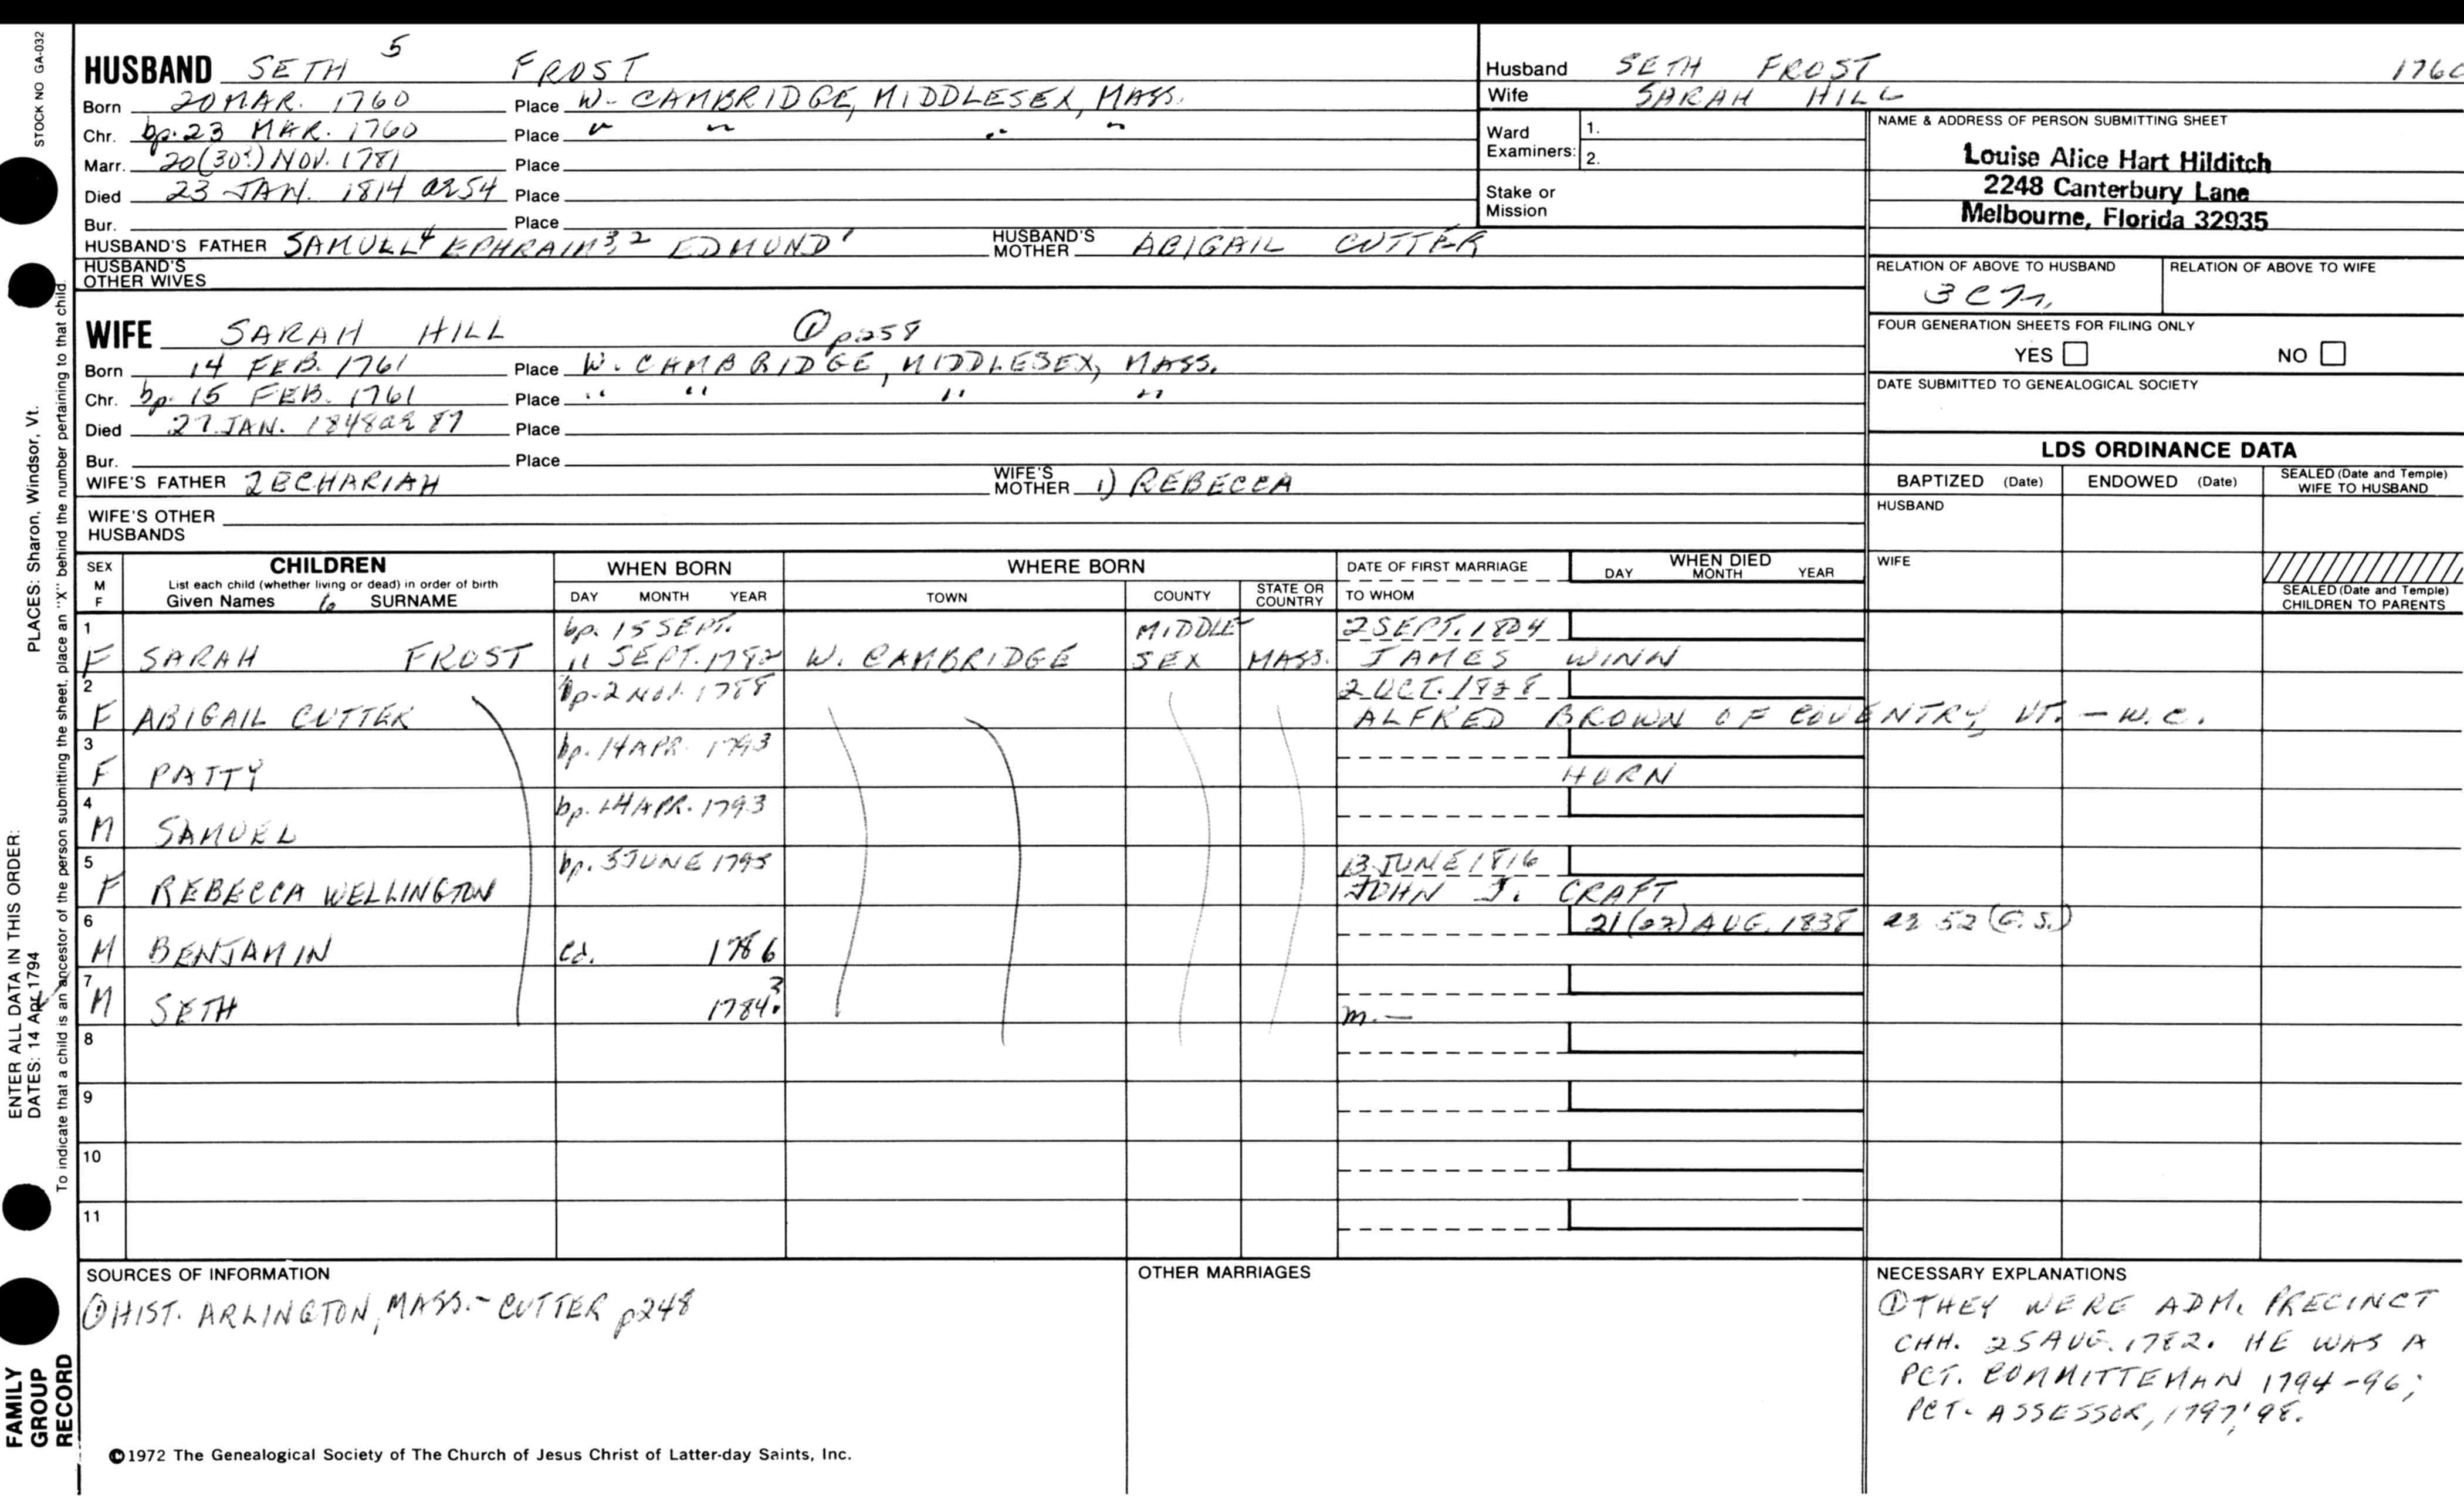 STOCK NO GA-032
HUSBAND SETH 5 FROST
Born 20 MAR. 1760 Place W. CAMBRIDGE, MIDDLESEX, MASS.
Chr. bp. 23 MAR. 1760 Place " " " "
Marr. 20(30?) NOV. 1781 Place
Died 23 JAN. 1814 ae 54 Place
Bur. Place
HUSBAND'S FATHER SAMUEL4 EPHRAIM3,2 EDMUND1 HUSBAND'S MOTHER ABIGAIL CUTTER
HUSBAND'S OTHER WIVES
Husband SETH FROST 1760
Wife SARAH HILL
Ward Examiners: 1.
2.
Stake or Mission
NAME & ADDRESS OF PERSON SUBMITTING SHEET
Louise Alice Hart Hilditch
2248 Canterbury Lane
Melbourne, Florida 32935
RELATION OF ABOVE TO HUSBAND RELATION OF ABOVE TO WIFE
FOUR GENERATION SHEETS FOR FILING ONLY
YES NO
DATE SUBMITTED TO GENEALOGICAL SOCIETY
WIFE SARAH HILL ① p258
Born 14 FEB. 1761 Place W. CAMBRIDGE, MIDDLESEX, MASS.
Chr. bp. 15 FEB. 1761 Place " " " "
Died 27 JAN. 1848 ae 87 Place
Bur. Place
WIFE'S FATHER ZECHARIAH WIFE'S MOTHER 1) REBECCA
WIFE'S OTHER HUSBANDS
LDS ORDINANCE DATA
BAPTIZED (Date) ENDOWED (Date) SEALED (Date and Temple) WIFE TO HUSBAND
HUSBAND
WIFE
SEALED (Date and Temple) CHILDREN TO PARENTS
SEX M F
CHILDREN
List each child (whether living or dead) in order of birth
Given Names 6 SURNAME
WHEN BORN
DAY MONTH YEAR
WHERE BORN
TOWN COUNTY STATE OR COUNTRY
DATE OF FIRST MARRIAGE
TO WHOM
WHEN DIED
DAY MONTH YEAR
1 bp. 15 SEPT. MIDDLE- 2 SEPT. 1804
F SARAH FROST 11 SEPT. 1782 W. CAMBRIDGE SEX MASS. JAMES WINN
2 bp. 2 NOV. 1788 2 OCT. 1828
F ABIGAIL CUTTER ALFRED BROWN OF COVENTRY, VT. - W.C.
3 bp. 14 APR. 1793
F PATTY HORN
4 bp. 14 APR. 1793
M SAMUEL
5 bp. 3 JUNE 1795 13 JUNE 1816
F REBECCA WELLINGTON JOHN J. CRAFT
6 21(22) AUG. 1838 ae 52 (G.S.)
M BENJAMIN Cd. 1786
7
M SETH 1784? m. —
8
9
10
11
SOURCES OF INFORMATION
① HIST. ARLINGTON, MASS. - CUTTER p248
OTHER MARRIAGES
NECESSARY EXPLANATIONS
① THEY WERE ADM. PRECINCT
CHH. 25 AUG. 1782. HE WAS A
PCT. COMMITTEMAN 1794-96;
PCT. ASSESSOR, 1797, '98.
©1972 The Genealogical Society of The Church of Jesus Christ of Latter-day Saints, Inc.
FAMILY
GROUP
RECORD
ENTER ALL DATA IN THIS ORDER:
DATES: 14 Apr 1794
PLACES: Sharon, Windsor, Vt.
To indicate that a child is an ancestor of the person submitting the sheet, place an "X" behind the number pertaining to that child.